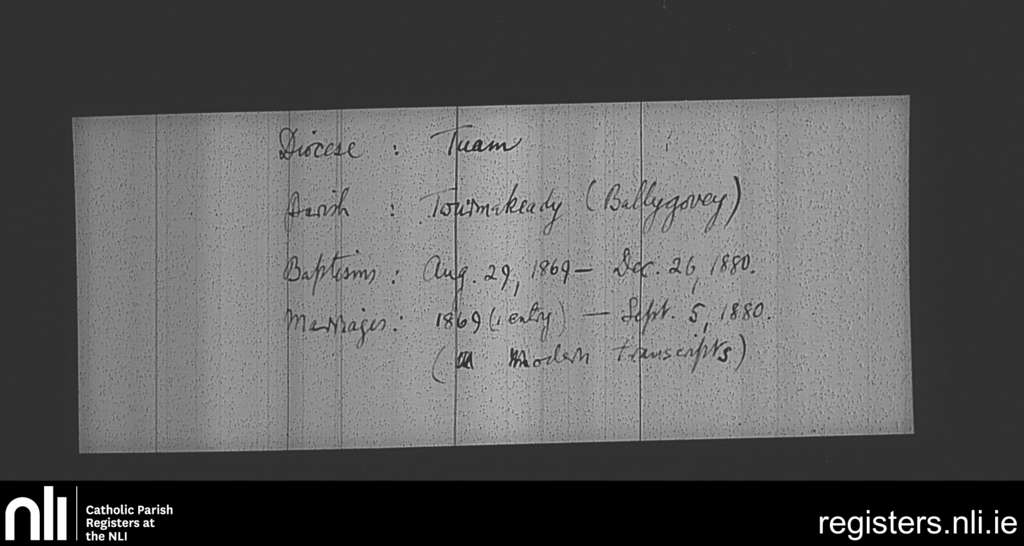 Diocese : Tuam
Parish : Tourmakeady (Ballygovey)
Baptisms : Aug. 29, 1869 – Dec. 26, 1880.
Marriages : 1869 (1 entry) – Sept. 5, 1880.
( Modern transcripts)
nli
Catholic Parish
Registers at
the NLI
registers.nli.ie